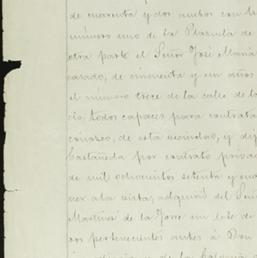 de cuarenta y dos ambos con
número uno de la Plazuela de
otra parte el Señor José María
casado, de cincuenta y un años
el número trece de la calle de
cio, todos capaces para contratar
conozco, de esta vecindad, y
Castañeda por contrato
de mil ochocientos setenta y
á la vista, adquirió del
Martinez de la Torre un lote de
pertenecientes antes á Don
de la